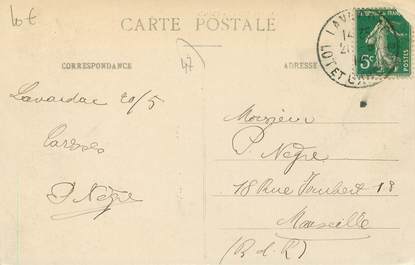 lot
CARTE POSTALE
47
CORRESPONDANCE
ADRESSE
LAVA
LOT ET GA
5c
Lavardac 20/5
Caresses
P Nègre
Monsieur
P. Nègre
18 Rue Joubert 18
Marseille
(B. d. R)